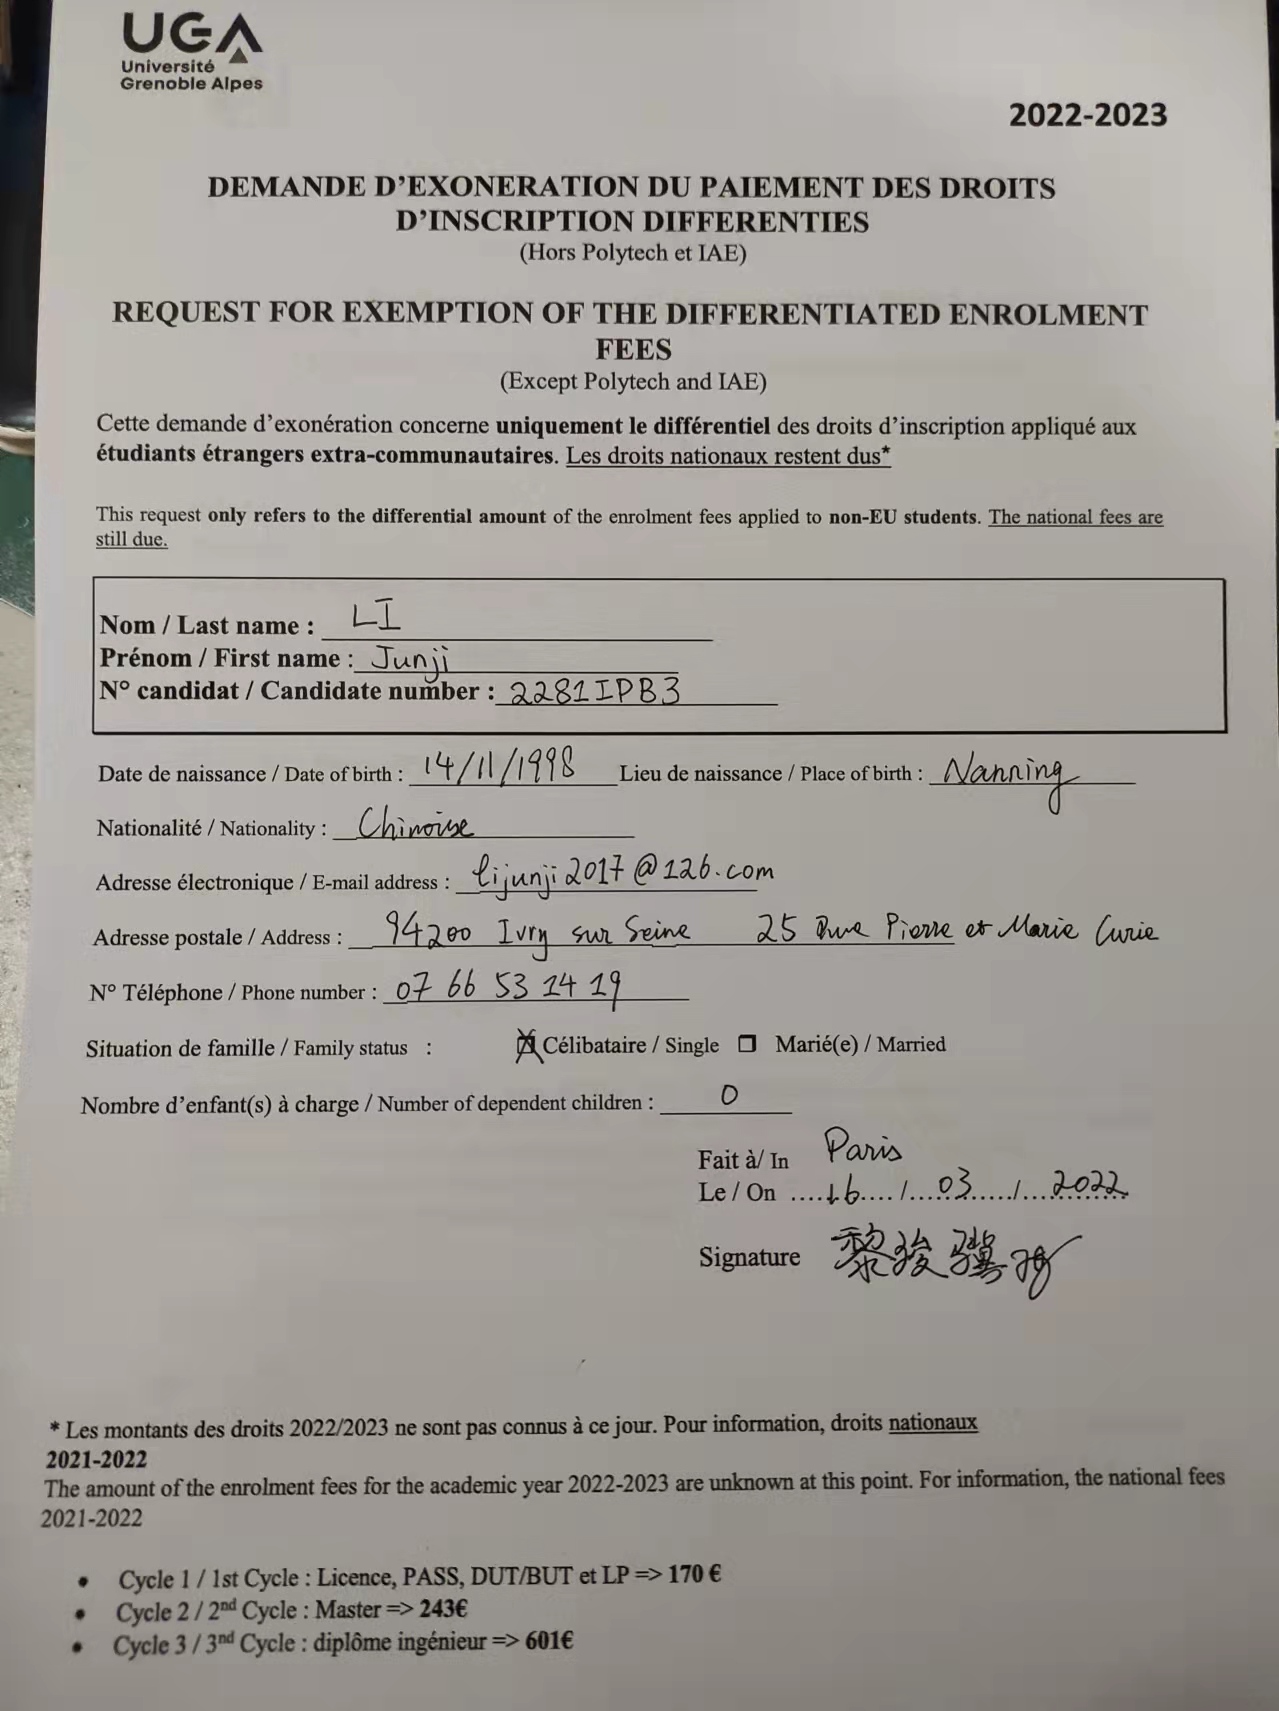 UGA
Université
Grenoble Alpes
2022-2023
DEMANDE D'EXONERATION DU PAIEMENT DES DROITS
D'INSCRIPTION DIFFERENTIES
(Hors Polytech et IAE)
REQUEST FOR EXEMPTION OF THE DIFFERENTIATED ENROLMENT
FEES
(Except Polytech and IAE)
Cette demande d'exonération concerne uniquement le différentiel des droits d'inscription appliqué aux
étudiants étrangers extra-communautaires. Les droits nationaux restent dus*
This request only refers to the differential amount of the enrolment fees applied to non-EU students. The national fees are
still due.
Nom / Last name : LI
Prénom / First name : Junji
N° candidat / Candidate number : 2281IPB3
Date de naissance / Date of birth : 14/11/1998 Lieu de naissance / Place of birth : Nanning
Nationalité / Nationality : Chinoise
Adresse électronique / E-mail address : lijunji2017@126.com
Adresse postale / Address : 94200 Ivry sur Seine 25 Rue Pierre et Marie Curie
N° Téléphone / Phone number : 07 66 53 14 19
Situation de famille / Family status : Célibataire / Single Marié(e) / Married
Nombre d'enfant(s) à charge / Number of dependent children : 0
Fait à/ In Paris
Le / On ....16..../...03...../...2022
Signature 黎骏骥
* Les montants des droits 2022/2023 ne sont pas connus à ce jour. Pour information, droits nationaux
2021-2022
The amount of the enrolment fees for the academic year 2022-2023 are unknown at this point. For information, the national fees
2021-2022
• Cycle 1 / 1st Cycle : Licence, PASS, DUT/BUT et LP => 170 €
• Cycle 2 / 2nd Cycle : Master => 243€
• Cycle 3 / 3nd Cycle : diplôme ingénieur => 601€